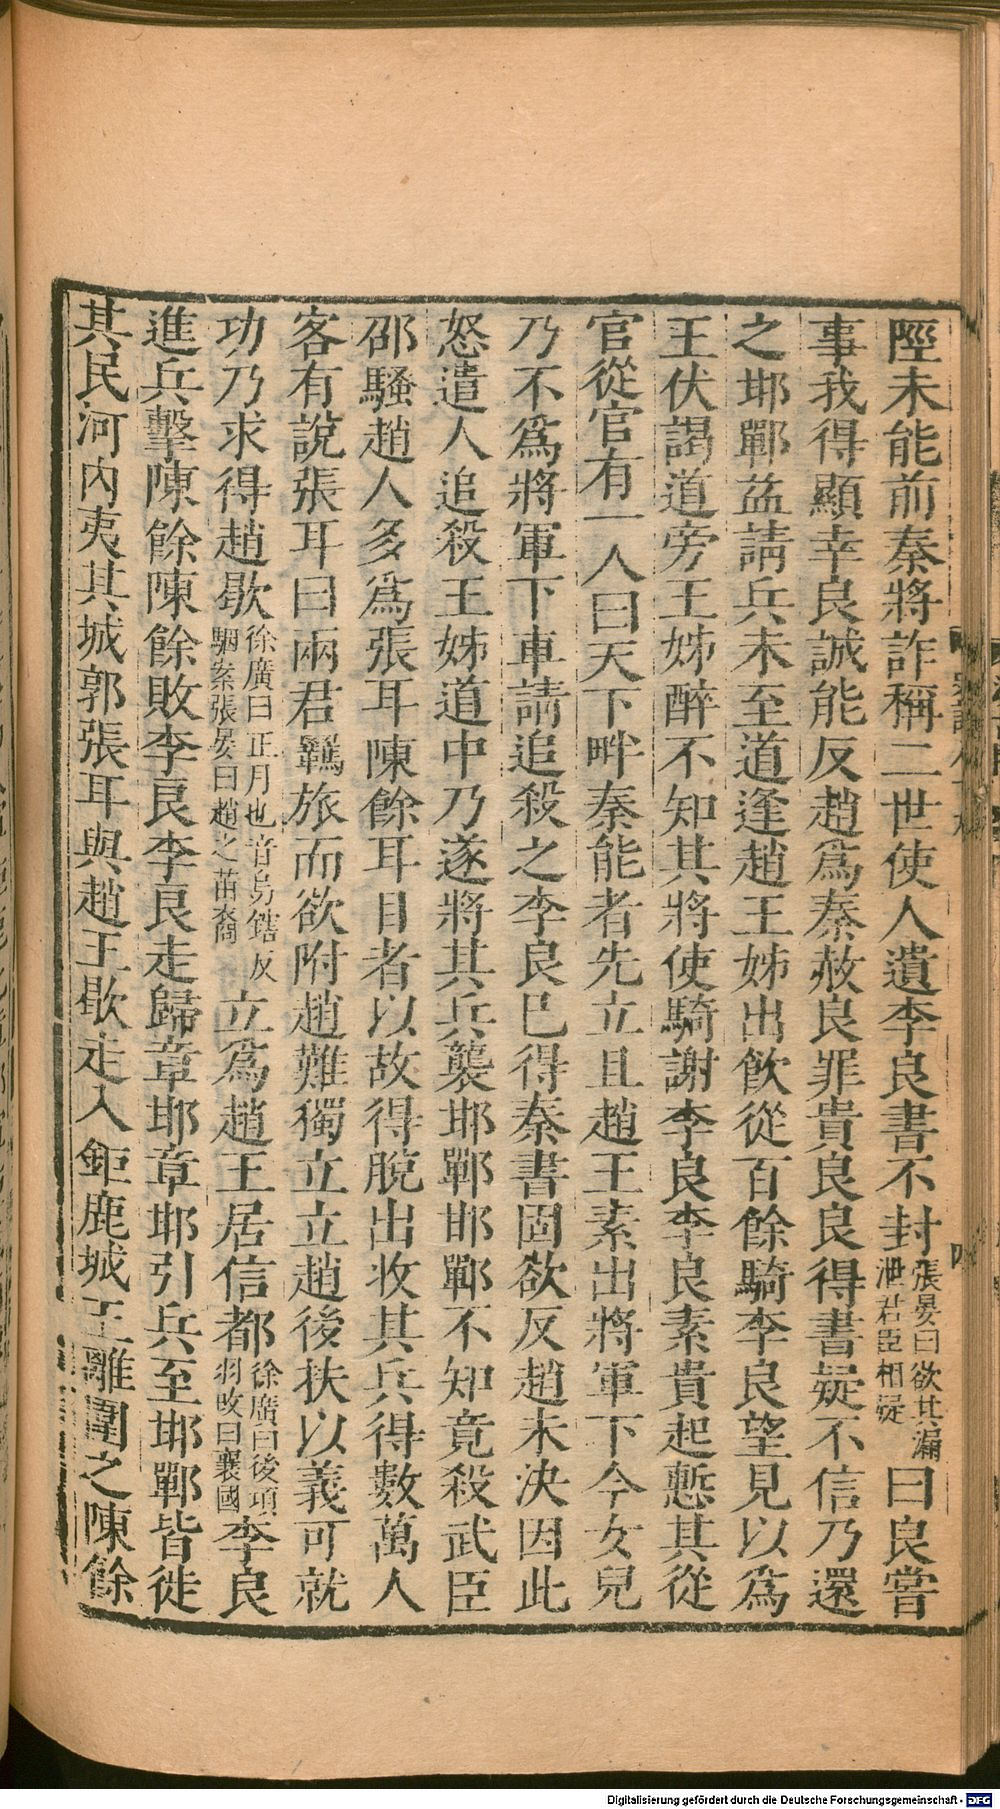 陘未能前秦將詐稱二世使人遺李良書不封張晏曰欲其漏泄君臣相疑曰良嘗
事我得顯幸良誠能反趙爲秦赦良罪貴良良得書疑不信乃還
之邯鄲益請兵未至道逢趙王姊出飮從百餘騎李良望見以爲
王伏謁道旁王姊醉不知其將使騎謝李良李良素貴起慙其從
官從官有一人曰天下畔秦能者先立且趙王素出將軍下今女兒
乃不爲將軍下車請追殺之李良已得秦書固欲反趙未決因此
怒遣人追殺王姊道中乃遂將其兵襲邯鄲邯鄲不知竟殺武臣
邵騷趙人多爲張耳陳餘耳目者以故得脫出收其兵得數萬人
客有說張耳曰兩君羈旅而欲附趙難獨立立趙後扶以義可就
功乃求得趙歇徐廣曰正月也音烏轄反駰案張晏曰趙之苗裔立爲趙王居信都徐廣曰後項羽改曰襄國李良
進兵擊陳餘陳餘敗李良李良走歸章邯章邯引兵至邯鄲皆徙
其民河內夷其城郭張耳與趙王歇走入鉅鹿城王離圍之陳餘
Digitalisierung gefördert durch die Deutsche Forschungsgemeinschaft - DFG